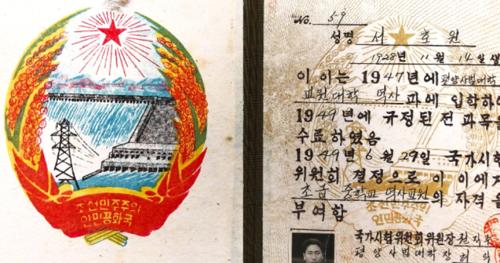 조선민주주의
인민공화국
No. 59
성명 서 호 원
1928년 11월 14일생
이 이는 1947년에 평양사범대학
교원대학 역사과에 입학하
1949년에 규정된 전 과목을
수료하였음
1949년 6월 29일 국가시험
위원회 결정으로 이 이에게
초급 중학교 역사교원의 자격을
부여함
국가시험위원회위원장
평양사범대학장